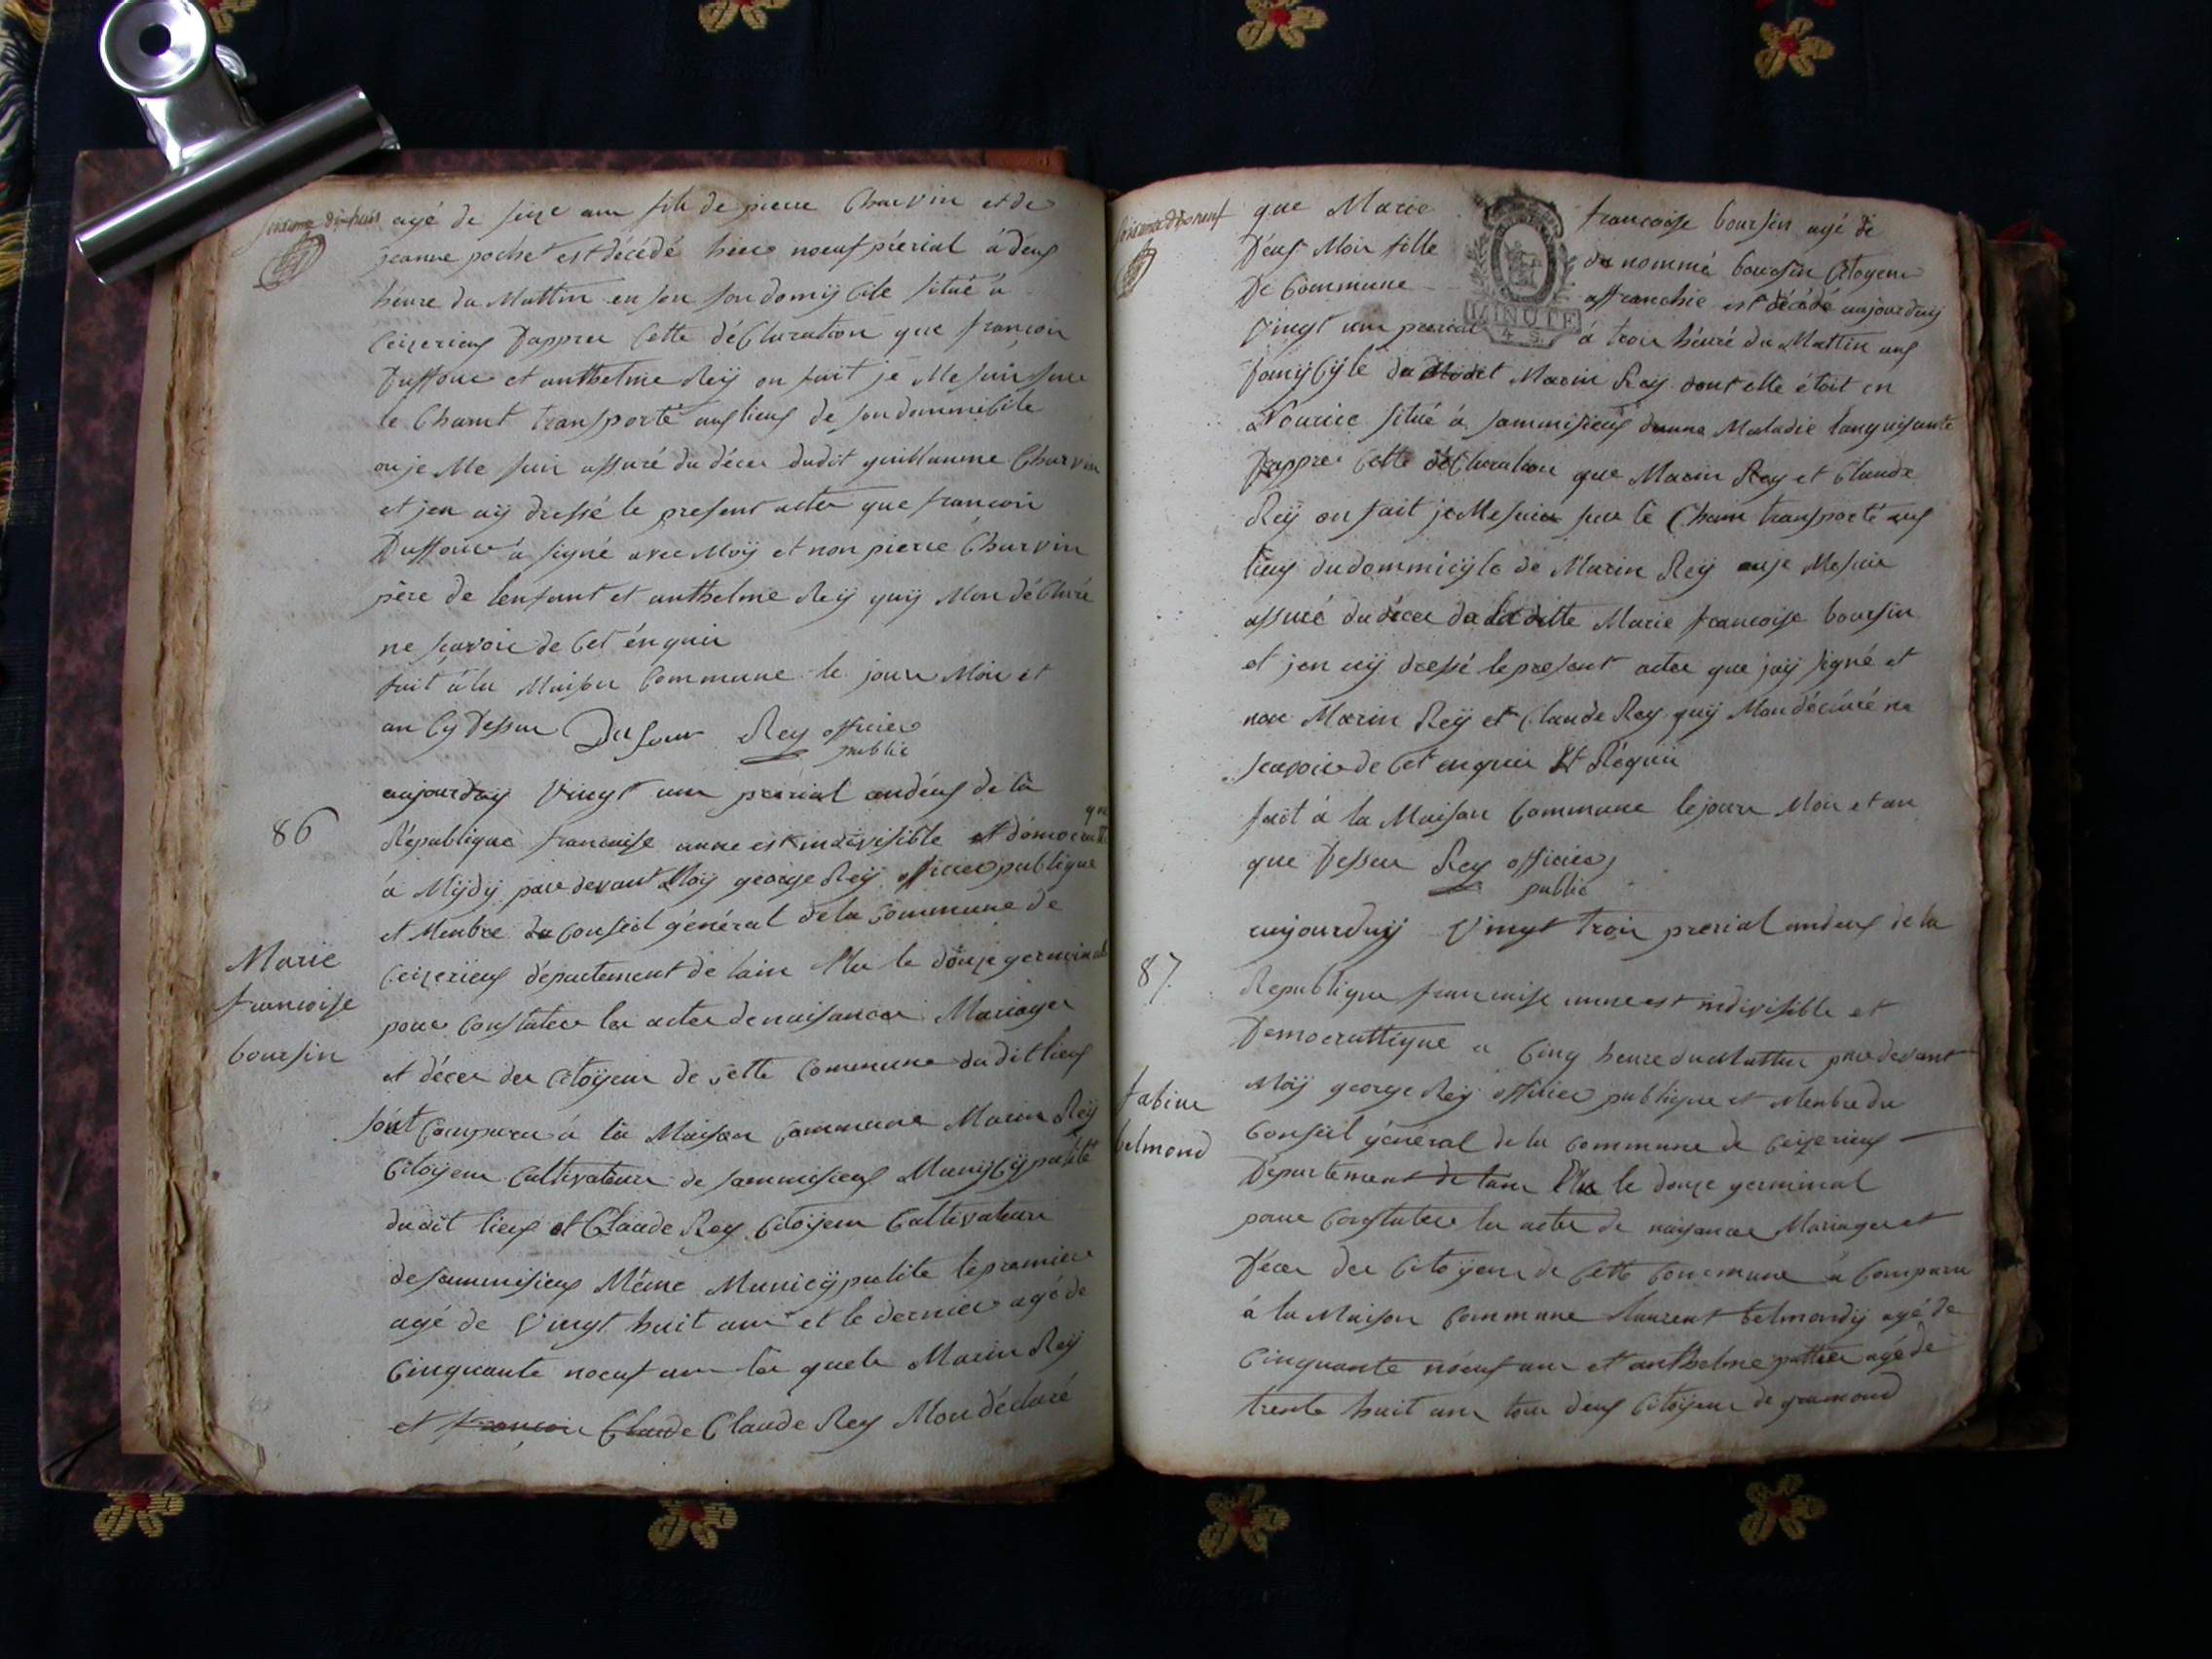 soixante dixhuit
agé de seize ans fils de pierre Charvin et de
jeanne pochet est décédé hier noeuf périal á deux
héure du Mattin en son son domijcile situé a
Ceizerieux Dappres Cette déClaration que francoin
Duffour et anthelme Reÿ on fait je Me suis sure
le Chamt transporté aux lieux de son dommicile
ou je Me suis assuré du déces dudit guillaume Charvin
et jen aÿ dressé le present actes que francoin
Duffour à signé avec Moÿ et non pierre Charvin
père de lenfant et anthelme Reÿ quÿ Mon déClaré
ne scavoir de Cet énquis
fait á la Maison Commune le jour Mois et
an Cy Dessus Dufour Rey officier
public
86
aujourduy Vingt un prérial andeux de la
République francaise unne est indivisible et démocrattique
á Mijdij pardevant Moÿ george Reÿ officier publique
et Menbre du Conseil général de la Commune de
Ceizerieux département de lain Elu le douze germinal
Marie
francoise
boursin
pour Constater les actes de naisances Mariages
et déces des Citoÿens de Cette Commune dudit lieux
sont Comparu á la Maison Commune Marin Reÿ
Citoÿen Cultivateur de sammisieux Munijcijpalité
dudit lieux et Claude Rey Citoÿen Cultivateur
de sammisieux Même Municÿpalite le premier
agé de Vingt huit ans et le dernier agé de
Cinquante noeuf ans les quels Marin Reÿ
et francoin Claude Claude Rey Mon déclaré
soixante dixneuf
que Marie francoise boursin agé de
Deux Mois fille du nommé boursin Citoyen
De Commune affranchie est décédé aujourduy
Vingt un prerial á trois héure du Mattin aux
MINUTE
Domijcÿle du Marin Reÿ dont elle étoit en
Nourice situé á sammisieux dunne Maladie languisante
Dappres Cette déClaration que Marin Rey et Claude
Reÿ on fait je Me suis sur le Cham transporté aux
lieux du dommicÿle de Marin Reÿ ou je Me suis
assuré du déces de laditte Marie francoise boursin
et jen aÿ dressé le présent actes que jaÿ signé et
non Marin Reÿ et Claude Rey quÿ Mon déclaré ne
scavoir de Cet enquis Et Réquis
fait á la Maison Commune le jour Mois et an
que Dessus Rey officier
public
aujourduij Vingt trois prerial andeux de la
87
Republique francaise unne est indivisible et
Democrattique a Cinq heure du Mattin pardevant
Moÿ george Reÿ officier publique et Menbre du
fabine
belmond
Conseil général de la Commune de Ceizerieux
Departement de lain Elu le douze germinal
pour Constater les actes de naisances Mariages et
Déces des Citoÿens de Cette Commune á Comparu
á la Maison Commune laurent belmondÿ agé de
Cinquante noeuf ans et anthelme pattier agé de
trente huit ans tous deux Citoÿens de gramond